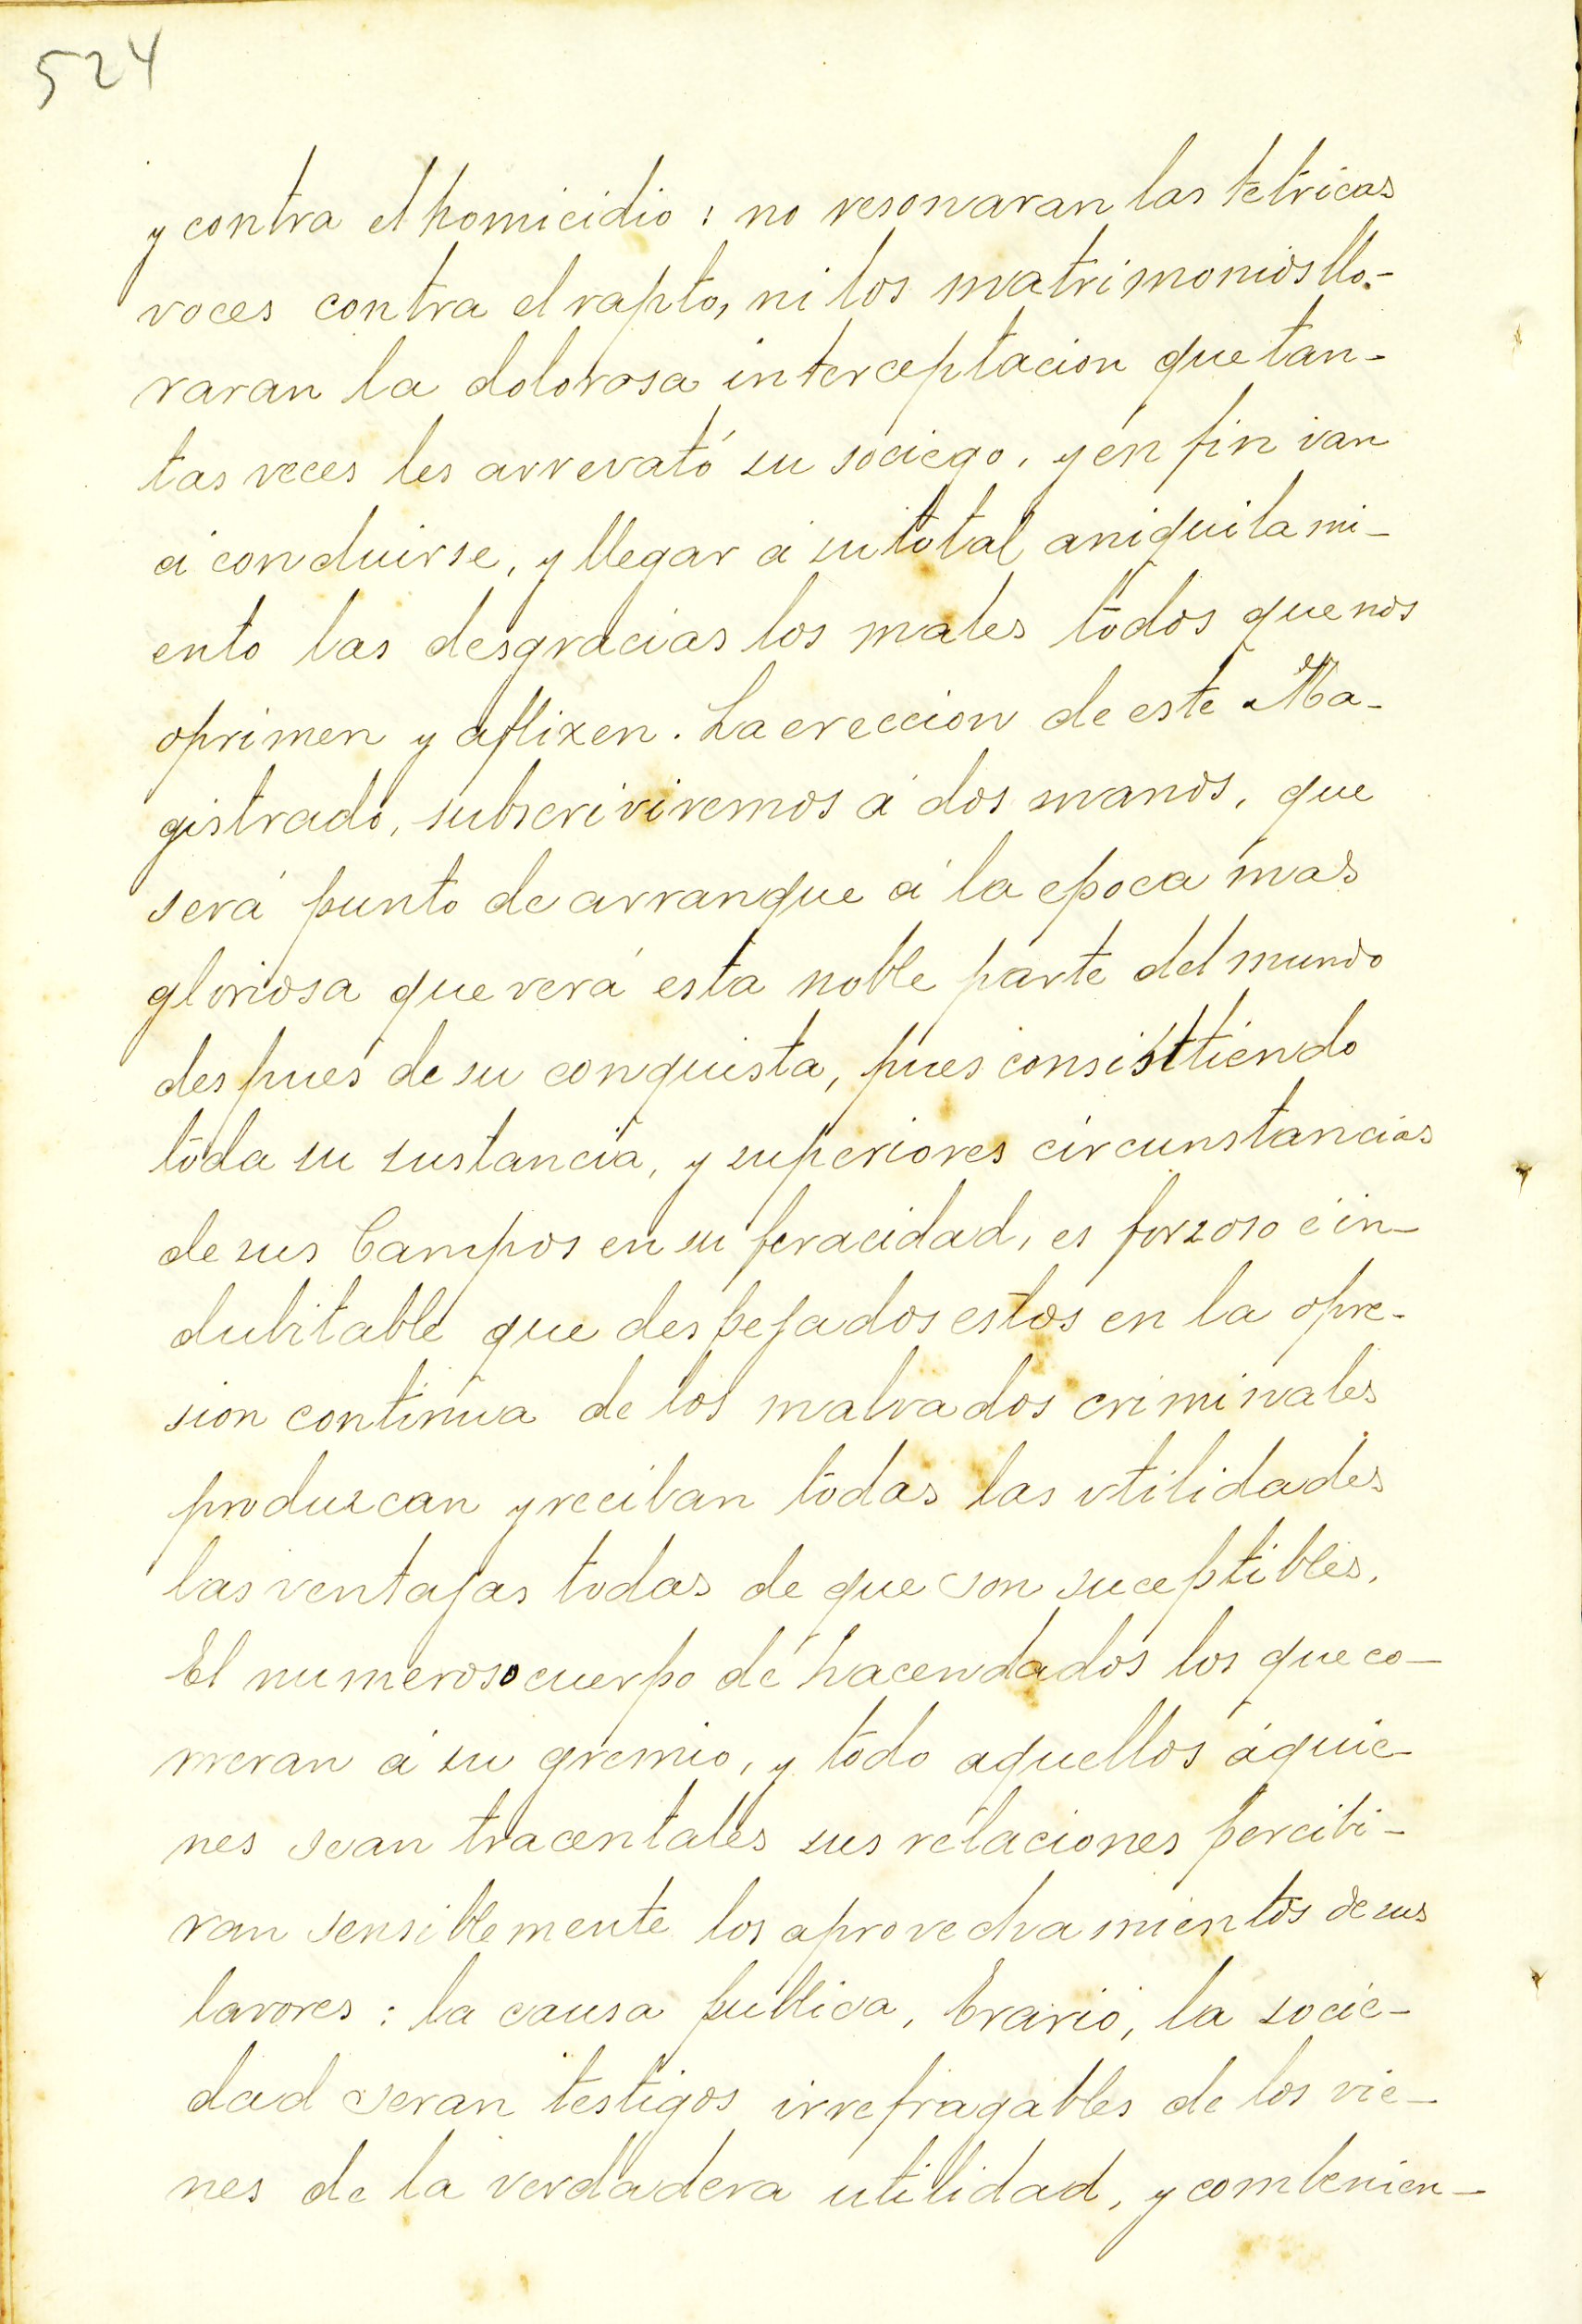 524
y contra el homicidio: no resonaran las tetricas
voces contra el rapto, ni los matrimonios llo-
raran la dolorosa interceptacion que tan-
tas veces les arrevató su sociego, y én fin van
á concluirse, y llegar á su total aniquilami-
ento las desgracias los males todos que nos
oprimen y aflixen. La ereccion de este Ma-
gistrado, subscriviremos á dos manos, que
será punto de arranque á la epoca mas
gloriosa que verá esta noble parte del mundo
despues de su conquista, pues consisttiendo
toda su sustancia, y superiores circunstancias
de sus Campos en su feracidad, es forzoso é in-
dubitable que despejados estos en la opre-
sion continua de los malvados criminales
produzcan y reciban todas las utilidades
las ventajas todas de que son suceptibles.
El numeroso cuerpo de hacendados los que co-
rreran á su gremio, y todo aquellos á quie-
nes sean tracentales sus relaciones percibi-
ran sensiblemente los aprovechamientos de sus
lavores: la causa publica, Erario, la socie-
dad seran testigos irrefragables de los vie-
nes de la verdadera utilidad, y combenien-